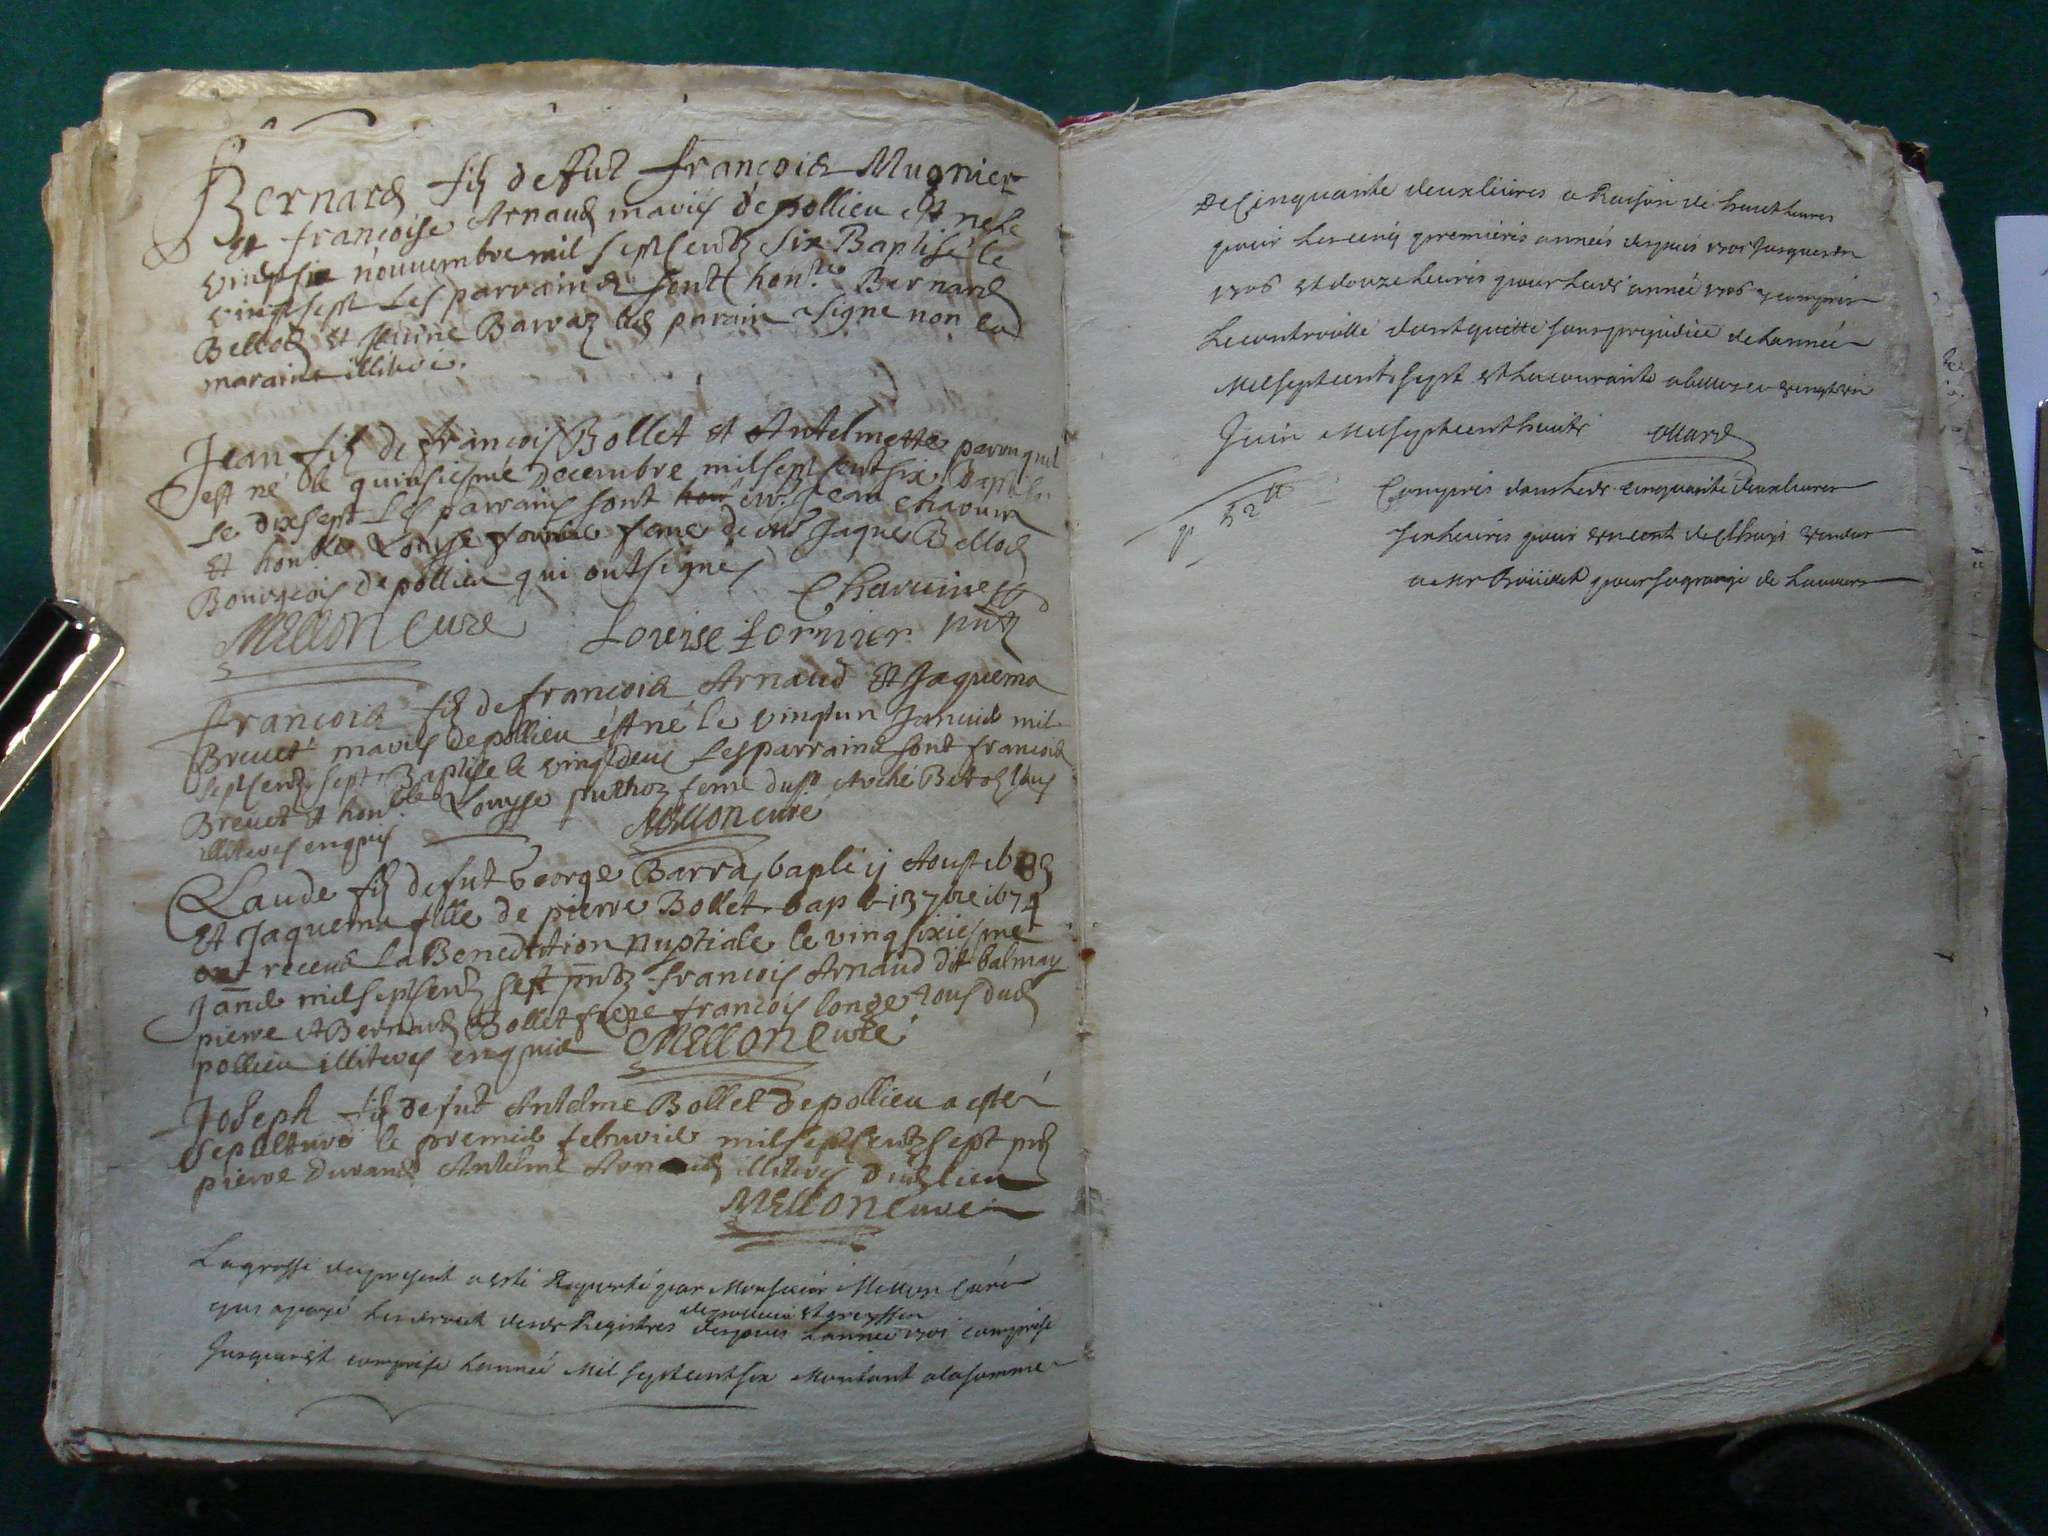 Bernard fils de fut françois Mugnier
et françoise Arnaud mariés de pollieu est ne le
vingt six nouvembre mil sept centz six Baptisé le
vingt sept Les parrains sont hon.ble Bernard
Bellod et Barraz led parain signe non lad
maraine illiterée.
Jean fils de françois Bollet et Antelmette parruquet
est né le quinsiesme Decembre mil sept cent six baptisé
le dixsept Les parrains sont Jean Chavuin
et hon.ble Louyse fournier feme de Jaque Bellod
Bourgeois de pollieu qui ont signés Chavuine
Mellon Curé Louise fornier pnt
françois fils de françois Arnaud et Jaquema
Brevet mariés de pollieu est né le vingt un Janvier mil
sept centz sept Baptisé le vingt deux Les parrains sont françois
Brevet et hon.ble Louyse puthoz feme du Bellod tous
illiterés enquis Mellon curé
Claude fils de fut George Barra, bap le ij Aoust 1683
et Jaquema fille de pierre Bollet bap le 13 7bre 1674
ont receus La Benediction nuptiale le vingt sixiesme
Janvier mil sept centz sept pntz françois Arnaud dit balmay
pierre et Bernard Bollet frere françois longe tous dud
pollieu illiterés enquis Mellon Curé
Joseph fils de fut Antelme Bollet de pollieu a esté
sepulturé le premier febvrier mil sept centz sept pntz
pierre Durand Antelme Arnaud illiterés dud lieu
Mellon Curé
La grosse du present a esté Raporté par Monsieur Mellon Curé
de pollieu et greyssieu
qui a payé Les droit desd Registres depuis Lannée 1701 comprise
Jusques et comprise Lannée Mil sept cent six Montant a la somme
De Cinquante deux livres a Raison de huict livres
pour Les cinq premieres années depuis 1701 Jusques en
1706 et douze livres pour lad année 1706 y compris
Le controolle dont quitte sans prejudice de Lannée
Mil sept cent sept et La courante a belley ce vingt un
Juin Mil sept cent huict
p.r 52 tt
Compris dans lesd cinquante deux livres
six livres pour un cent de vendu
a Mr pour sa grange de